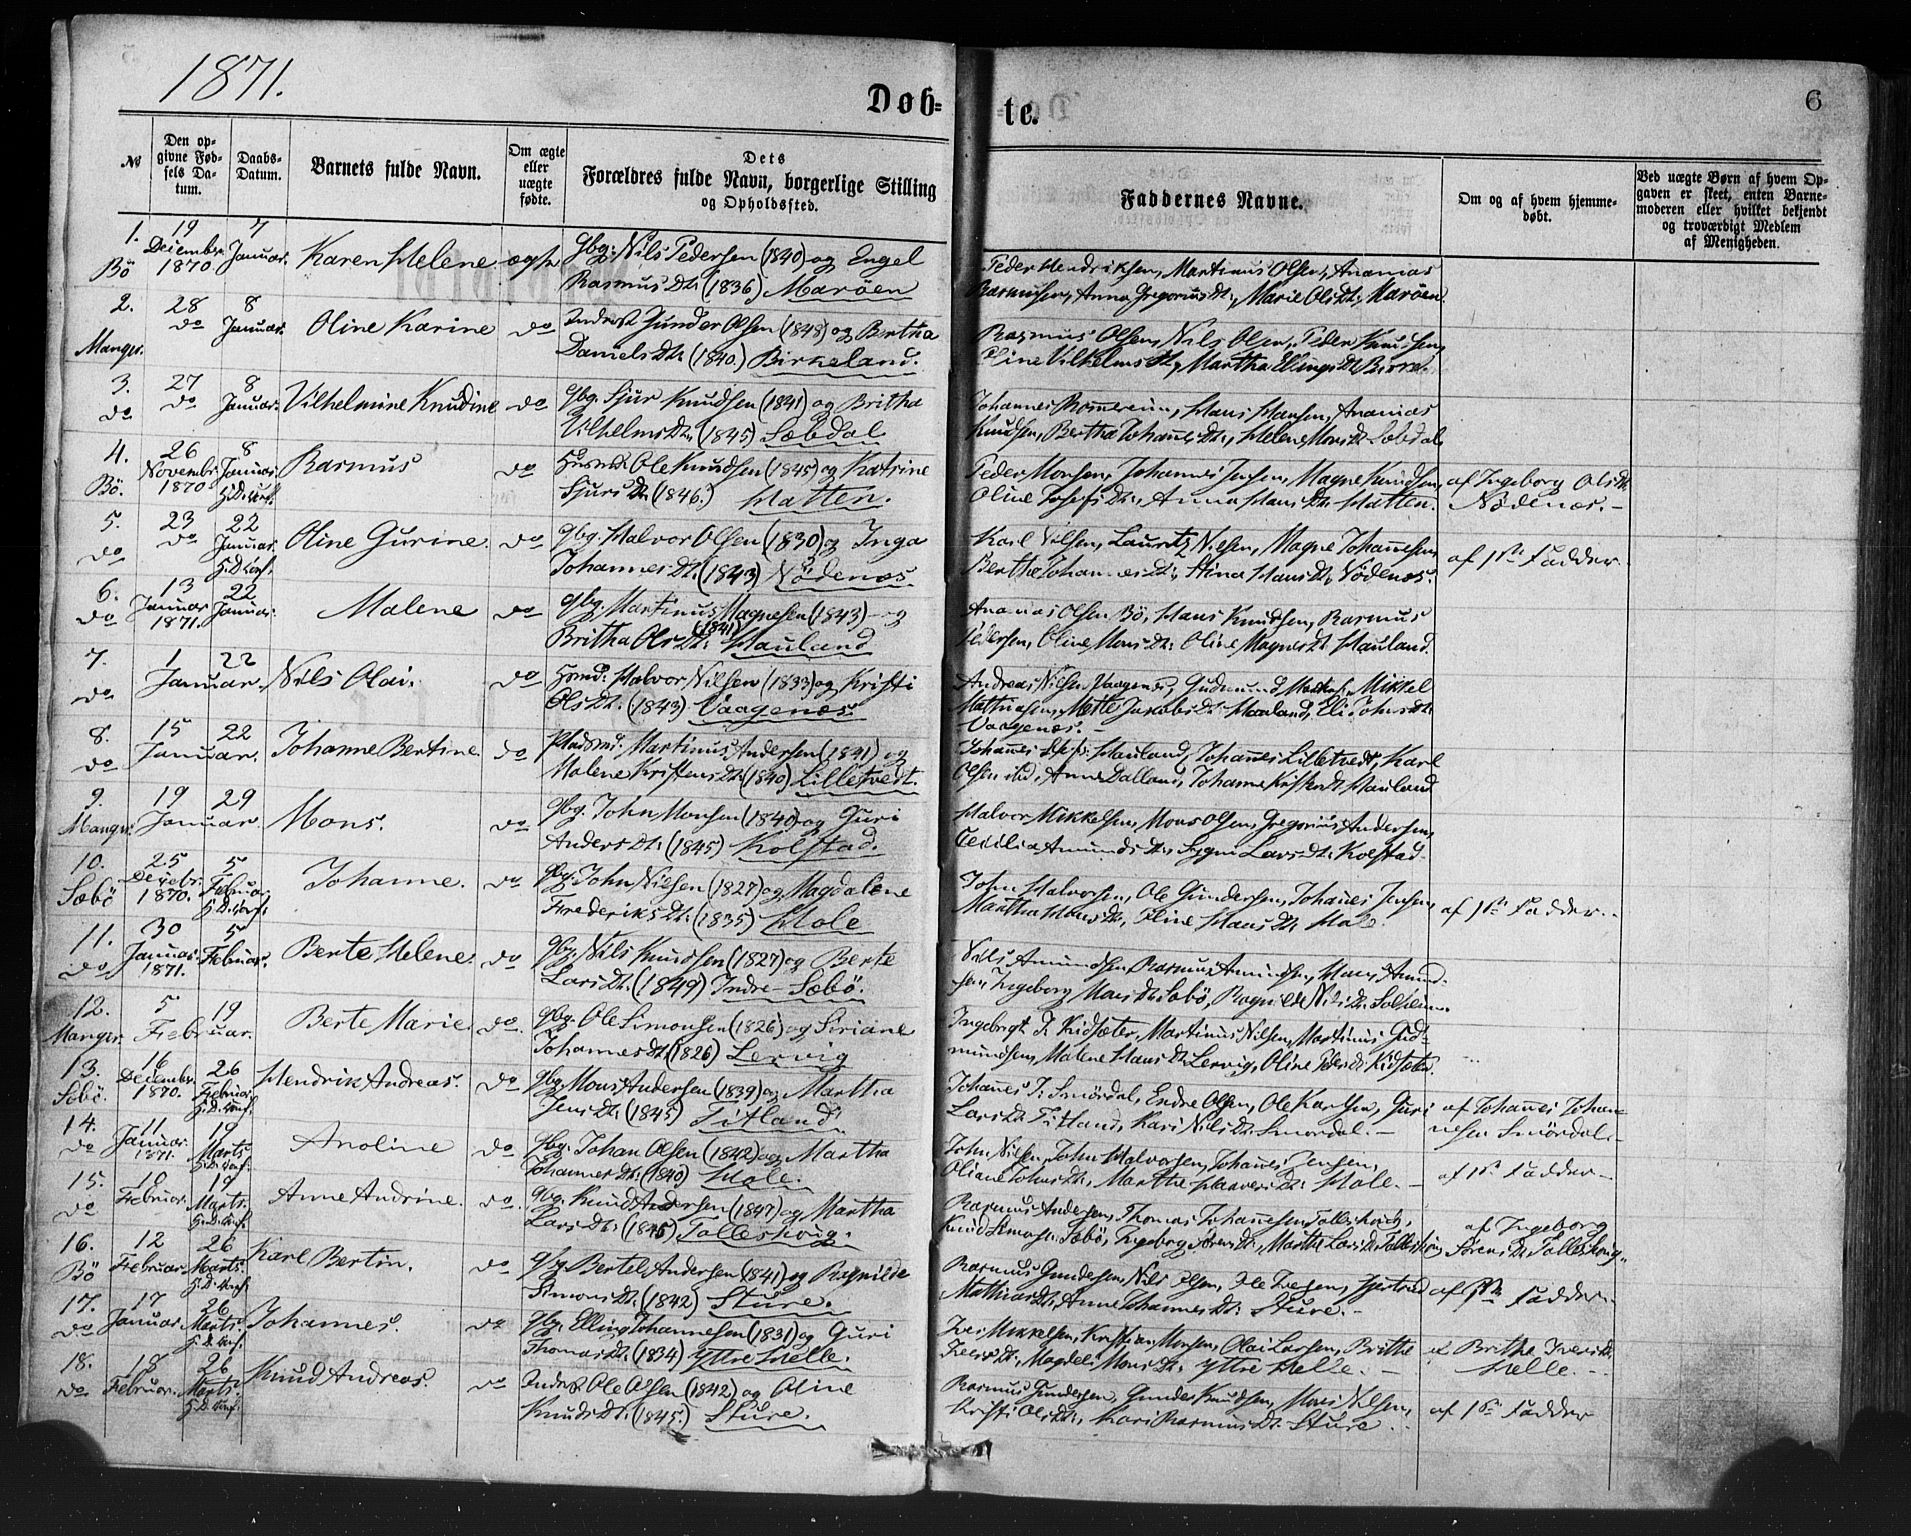 1871.
Døb-
te.
6
№
Den opgivne Fødsels Datum.
Daabs-Datum.
Barnets fulde Navn.
Om ægte eller uægte fødte.
Dets Forældres fulde Navn, borgerlige Stilling og Opholdssted.
Faddernes Navne.
Om og af hvem hjemmedøbt.
Ved uægte Børn af hvem Opgaven er skeet, enten Barnemoderen eller hvilket bekjendt og troværdigt Medlem af Menigheden.
1. Bö 19 Decembr. 1870 7 Januar. Karen Helene ægte
Gbg: Nils Pedersen (1840) og Engel
Rasmus Dt: (1836) Maröen
Peder Hendriksen, Martinus Olsen, Ananias
Rasmussen, Anna Gregorius Dt:, Marie Ols Dt: Maröen.
2. Manger. 28 do 8 Januar. Oline Karine do
Gunder Olsen (1848) og Bertha
Daniels Dt: (1840.) Birkeland.
Rasmus Olsen, Nils Olsen, Peder Knudsen,
Oline Vilhelms Dt:, Martha Ellings Dt:
3. do 27 do 8 Januar. Vilhelmine Knudine do
Gbg. Sjur Knudsen (1841) og Britha
Vilhelms Dt: (1845) Sæbdal
Johannes Romereim, Hans Hansen, Ananias
Knudsen, Bertha Johans Dt:, Helene Mons Dt: Sæbdal
4. Bö. 26 Novembr. 1870 8 Januar. H.D. conf. Rasmus do
Husmd. Ole Knudsen (1845) og Katrine
Sjurs Dt: (1846.) Hatten.
Peder Monsen, Johannes Jensen, Magne Knudsen,
Oline Josefs Dt:, Anna Hans Dt: Hatten.
af Ingeborg Ols Dt:
Nödenæs.-
5. do 23 do 22 Januar. H.D. conf. Oline Gurine. do
Gbg. Halvor Olsen (1830) og Inga
Johannes Dt: (1843) Nödenæs.
Karl Nilsen, Lauritz Nilsen, Magne Johannesen,
Bertha Johannes Dt:, Stina Hans Dt: Nödenæs.
af 1ste Fadder.
6. do 13 Januar 1871. 22 Januar. Malene do
Gbg. Martinus Magnesen (1843) og
Britha Ols Dt: (1841) Hauland
Ananias Olsen Bö, Hans Knudsen, Rasmus
Pedersen, Oline Mons Dt: Oline Magnes Dt: Hauland.
7. do 1 Januar. 22 Nils Olai. do
Husmd. Halvor Nilsen (1833) og Kristi
Ols Dt: (1843) Vaagenæs.
Andreas Nilsen Vaagenæs, Gudmund Mikkel
Mathiasen, Mette Jakobs Dt: Hauland, Eli Johns Dt:
Vaagenæs.-
8. do 15 Januar. 22 Johanne Bertine. do
Pladsmd. Martinus Andersen (1841) og
Malene Kristens Dt: (1840) Lilletvedt.
Johannes Hauland, Johannes Lilletvedt, Karl
Olsen ibd, Anne Dalland, Johanne Kristens Dt: Hauland
9. Manger. 19 Januar. 29 Mons. do
Gbg. John Monsen (1840) og Guri
Anders Dt: (1845) Kolstad.
Halvor Mikkelsen, Mons Olsen, Gregorius Andersen,
Cecilia Amunds Dt:, Sygni Lars Dt: Kolstad.
10. Sæbö 25 Decbr. 1870. 5 Februar H.D. conf. Johanne. do
Gbg. John Nilsen (1827) og Magdalene
Frederiks Dt: (1835) Hole
John Halvorsen, Ole Gundersen, Johannes Jensen,
Martha Hans Dt:, Eline Hans Dt: Hole
af 1ste Fadder.-
11. do 30 Januar 1871. 5 Februar. Berte Helene. do
Gbg. Nils Knudsen (1827) og Berte
Lars Dt: (1849) Indre-Sæbö.
Nils Amundsen, Rasmus Amundsen, Mons Amund-
sen, Ingeborg Mons Dt: Sæbö, Ragnilde Nils Dt: Solheim.
12. Manger. 5 Februar. 19 Berte Marie do.
Gbg. Ole Simonsen (1826) og Siriane
Johannes Dt: (1826) Lervig
Ingebrigt I. Kidsæter, Martinus Nilsen, Martinus Gud-
mundsen, Malene Hans Dt: Lervig, Oline Peders Dt: Kidsæter.
13. Sæbö. 16 Decembr. 1870. 26 Februar H.D. conf. Hendrik Andreas. do
Gbg. Mons Andersen (1839) og Martha
Jens Dt: (1845) Titland.
Johannes J. Smördal, Endre Olsen, Ole Karlsen, Guri
Lars Dt: Titland, Kari Nils Dt: Smördal.-
af Johannes Johan-
nesen Smördal.-
14. do 11 Januar 1871. 19 Marts. H.D. conf. Anoline do.
Gbg. Johan Olsen (1842) og Martha
Johannes Dt: (1840) Hole.
John Nilsen, John Halvorsen, Johannes Jensen,
Oliane Johns Dt:, Marthe Dt: Hole.-
af 1ste Fadder.-
15. do 10 Februar. 19 Marts. H.D. conf. Anne Andrine do.
Gbg. Knud Andersen (1847) og Martha
Lars Dt: (1845) Tolleshoug.
Rasmus Andersen, Thomas Johannesen Tolleshoug,
Knud Simonsen Sæbö, Ingeborg Sörens Dt:, Marthe Lars Dt: Tolleshoug
af Ingeborg
Sörens Dt: Tolleshoug.
16. Bö 12 Februar. 26 Marts. H.D. conf. Karl Bertin. do
Gbg. Bertel Andersen (1841) og Ragnilde
Simons Dt: (1842) Sture.
Rasmus Gundersen, Nils Olsen, Ole Iversen, Gjertrud
Mathias Dt:, Anne Johannes Dt: Sture.-
af 1ste Fadder.
17. do 17 Januar. 26 Marts. H.D. conf. Johannes. do
Gbg. Elling Johannesen (1831) og Guri
Thomas Dt: (1834) Yttre Helle.
Iver Mikkelsen, Kristian Monsen, Olai Larsen, Brithe
Ivers Dt:, Magdeli Mons Dt: Yttre Helle.-
af Brithe Ivers Dt:
Helle.-
18. do 18 Februar. 26 Marts. H.D. conf. Knud Andreas. do
Ole Olsen (1842) og Oline
Knuds Dt: (1845.) Sture.
Rasmus Gundersen, Gunder Knudsen, Mons Nilsen,
Kristi Ols Dt:, Kari Rasmus Dt: Sture.
af 1ste Fadder